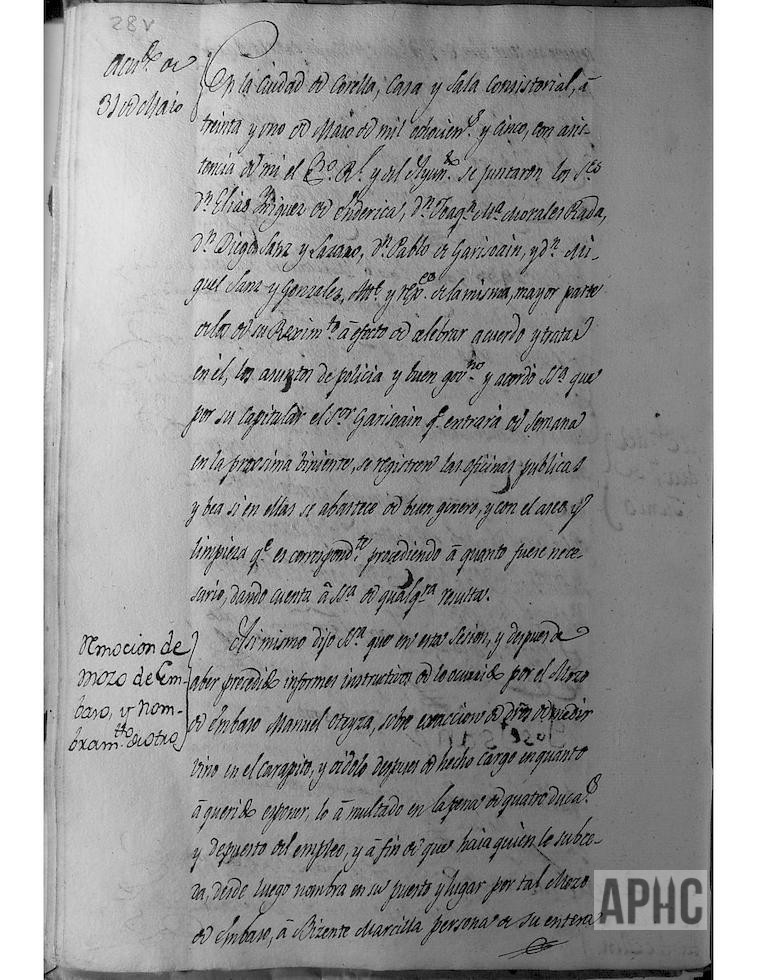 28v
Acu.do de
31 de Maio
En la Ciudad de Corella, Casa y Sala Consistorial, á
treinta y uno de Maio de mil ochocien.s y cinco, con asis-
tencia de mi el Es.no R.l y del Ayun.to se juntaron los S.res
D.n Elias Yñiguez de , D.n Joaq.n M.a Morales Rada,
D.n Diego Sanz y Lazaro, D.n Pablo de Garisoain, y D.n Mi-
guel Sanz y Gonzalez, Alc.e y rex.res de la misma, mayor parte
de los de su Rexim.to á efecto de celebrar acuerdo y tratar
en él, los asuntos de policia y buen gov.no y acordó S.S.a que
por su Capitular el S.or Garisoain q.e entrará de Semana
en la procsima biniente, se registren las oficinas publicas
y bea si en ellas se abastece de buen genero, y con el aseo y
limpieza q.e es correspond.te procediendo á quanto fuere nece-
sario, dando cuenta á S.S.a de qualq.ra resulta.
Remocion de
mozo de Em-
baso, y nom-
bram.to de otro
Asimismo dijo S.S.a que en esta Sesion, y despues de
aber procedido informes instructivos de lo ocurrido por el Mozo
de Embaso Manuel Oteyza, sobre de medir
vino en el Carapito, y oidolo despues de hecho cargo en quanto
á querido esponer, lo á multado en la pena de quatro duca.s
y depuesto del empleo, y á fin de que haia quien le subce-
da, desde luego nombra en su puesto y lugar por tal Mozo
de Embaso, á Bizente Marcilla persona de su entera
APHC